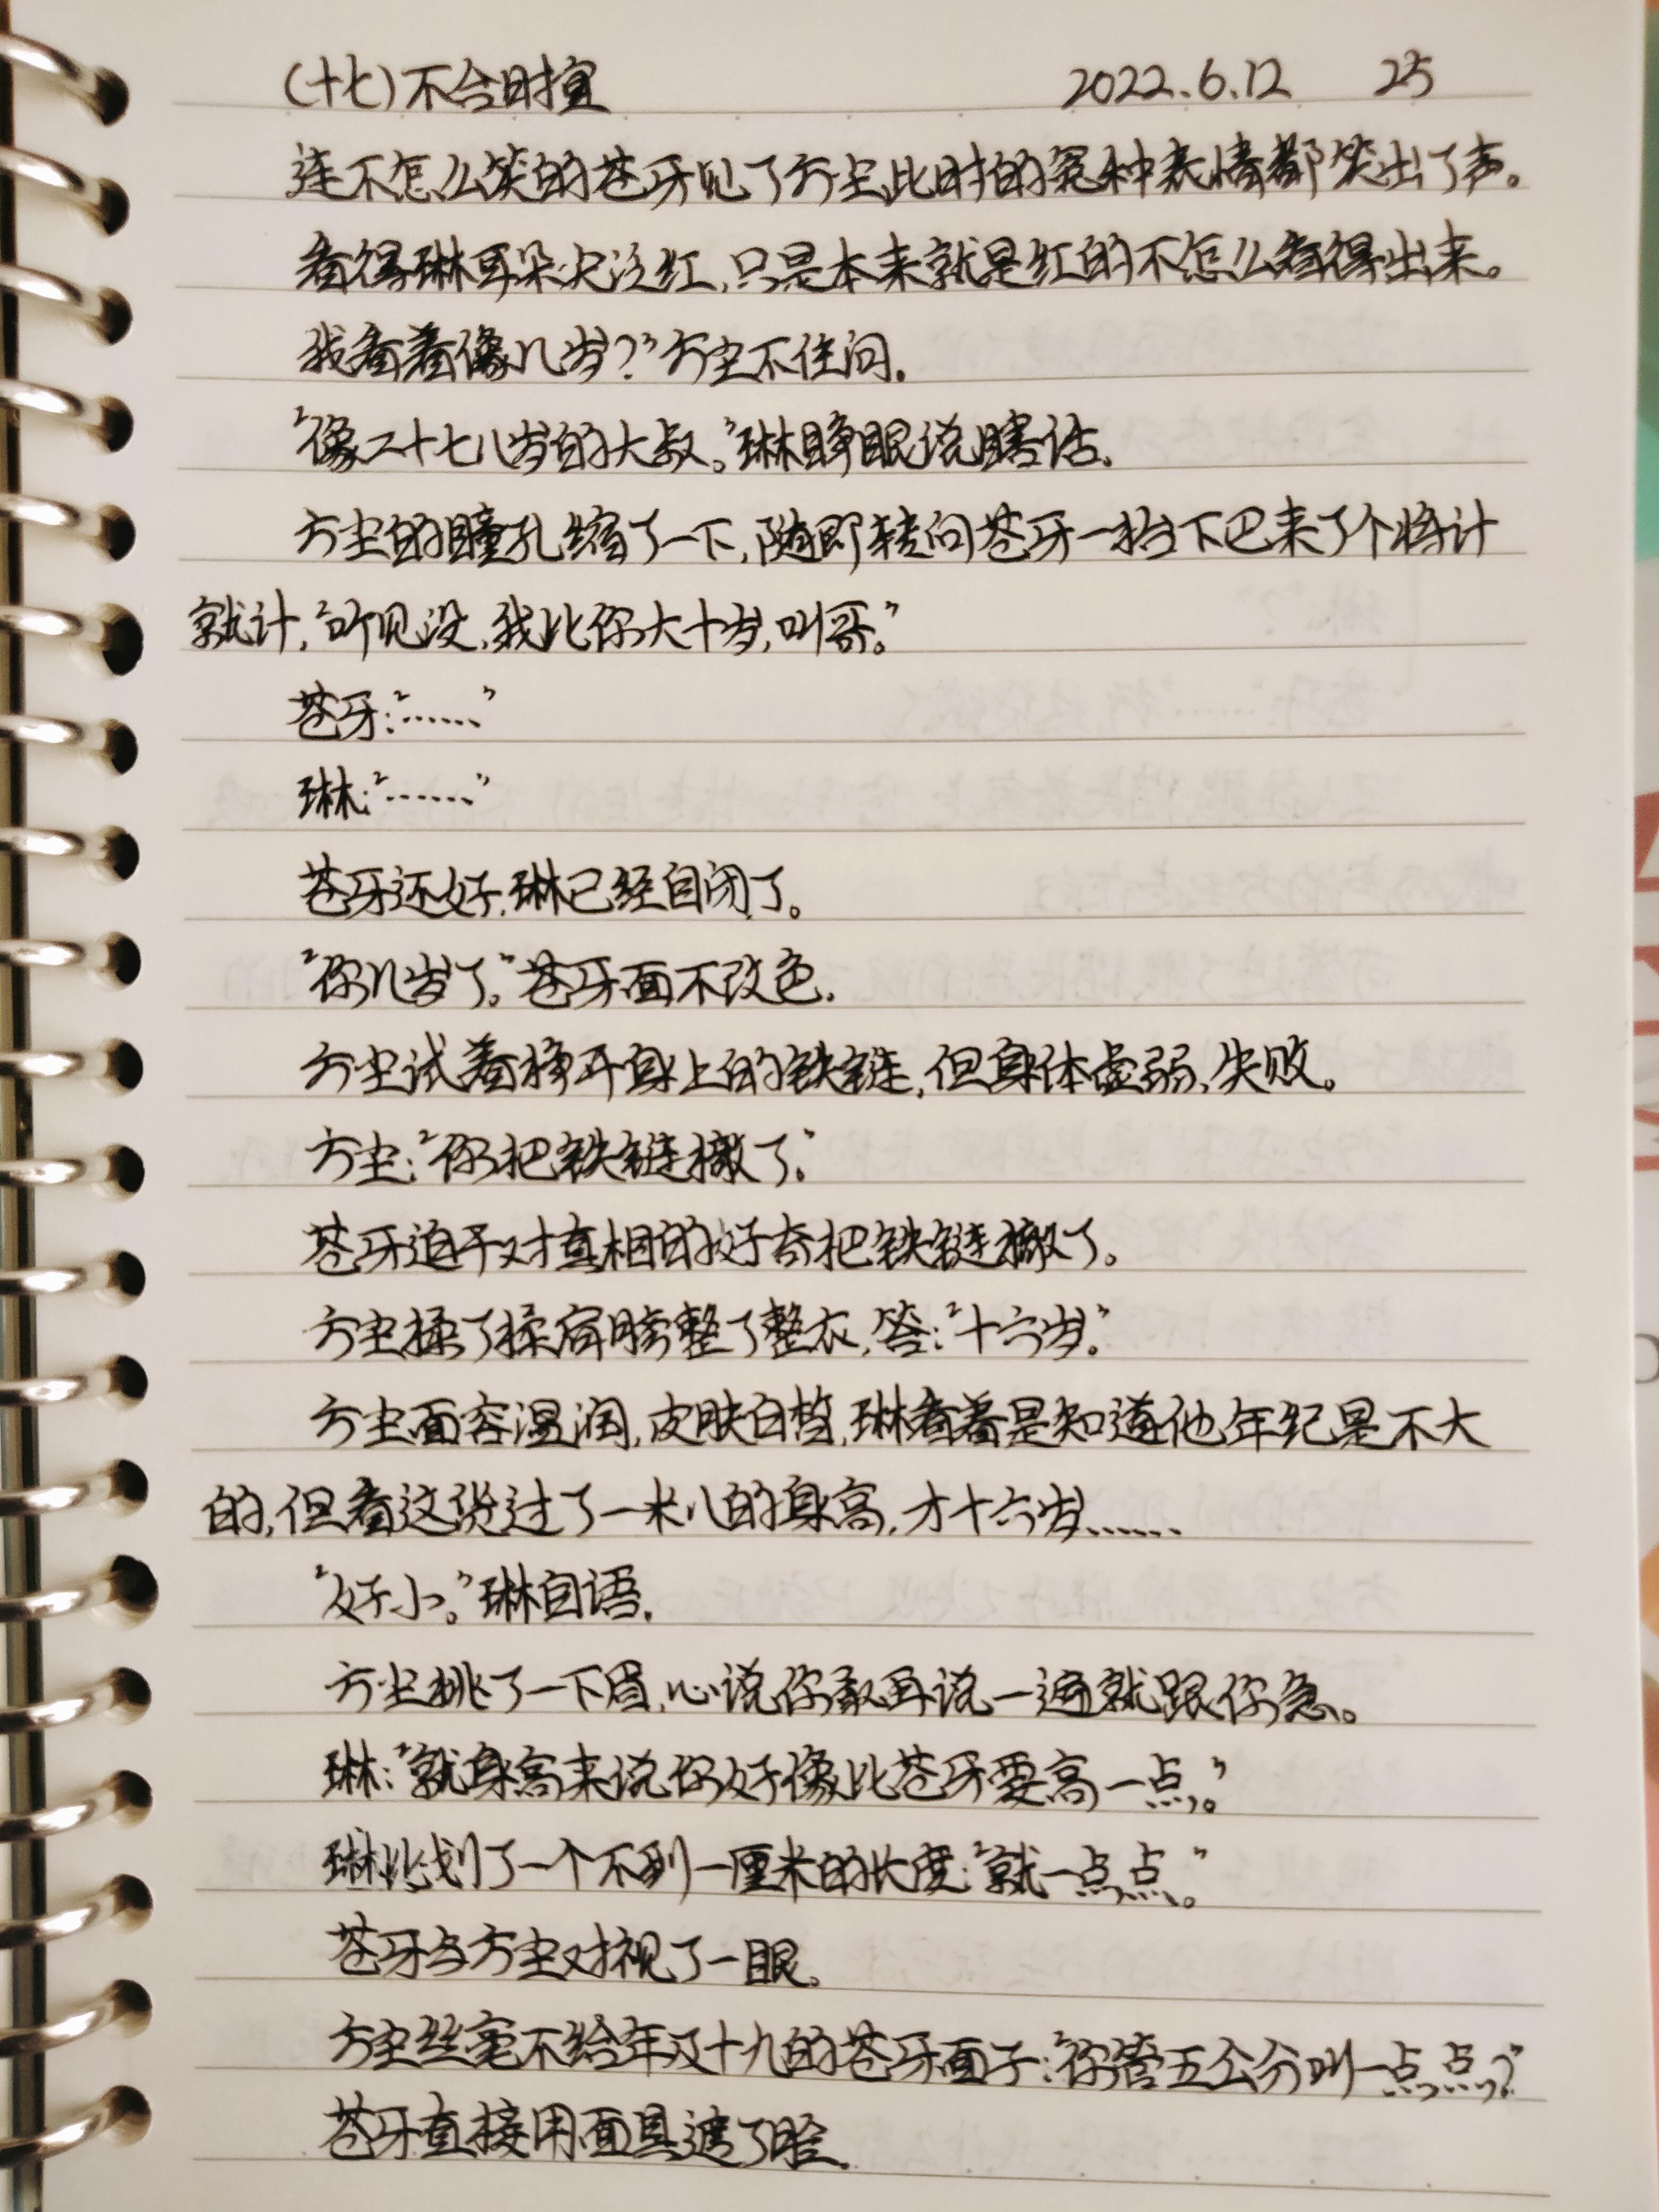 (十七)不合时宜 2022.6.12 25
连不怎么笑的苍牙见了方尘此时的冤种表情都笑出了声。
看得琳耳朵尖泛红,只是本来就是红的不怎么看得出来。
我看着像几岁?”方尘不住问.
“像二十七八岁的大叔。”琳睁眼说瞎话.
方尘的瞳孔缩了一下,随即转向苍牙一抬下巴来了个将计
就计,“听见没,我比你大十岁,叫哥。”
苍牙:“……”
琳:“……”
苍牙还好,琳已经自闭了。
“你几岁了。”苍牙面不改色.
方尘试着挣开身上的铁链,但身体虚弱,失败。
方尘:“你把铁链撤了.”
苍牙迫于对真相的好奇把铁链撤了。
方尘揉了揉肩膀整了整衣,答:“十六岁.”
方尘面容温润,皮肤白皙,琳看着是知道他年纪是不大
的,但看这货过了一米八的身高,才十六岁……
“好小。”琳自语.
方尘挑了一下眉,心说你敢再说一遍就跟你急。
琳:“就身高来说你好像比苍牙要高一点。”
琳比划了一个不到一厘米的长度:“就一点点。”
苍牙与方尘对视了一眼。
方尘丝毫不给年及十九的苍牙面子:“你管五公分叫一点点?”
苍牙直接用面具遮了脸.